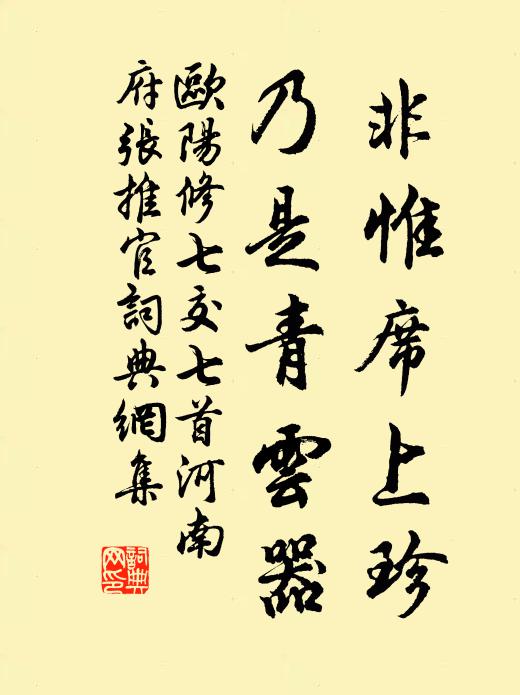 非惟席上珍
乃是青雲器
歐陽修七交七首河南
府張推官詞典網集
詞典网印